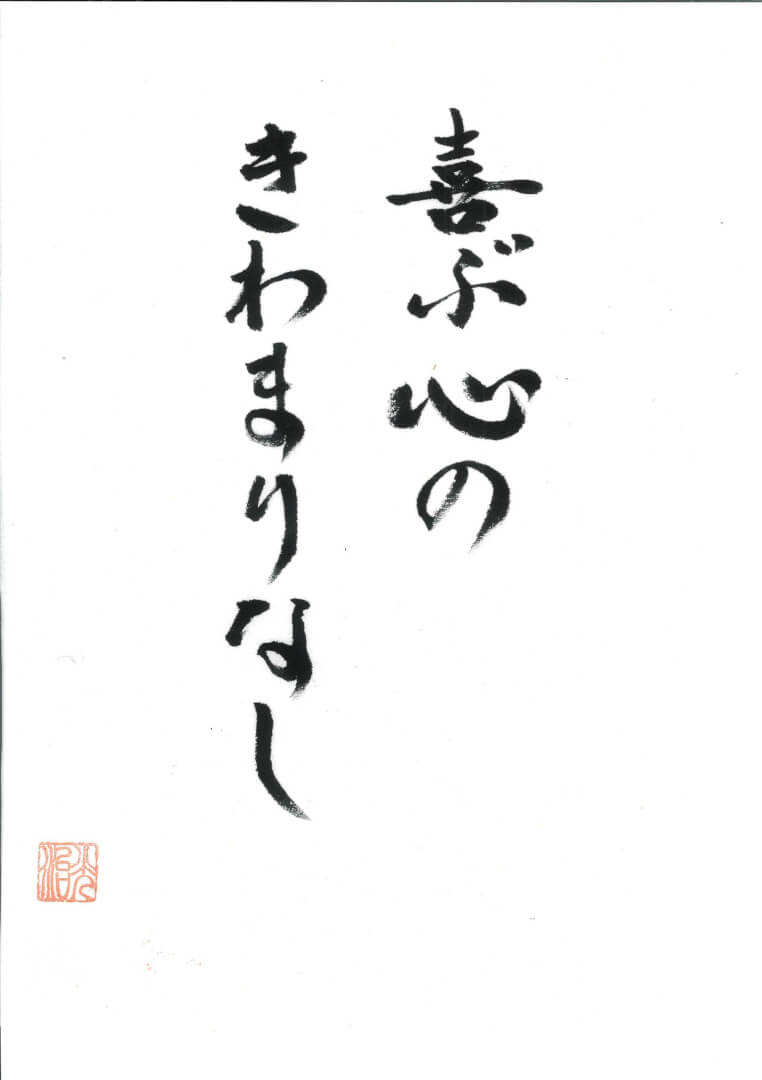 喜ぶ心の
きわまりなし